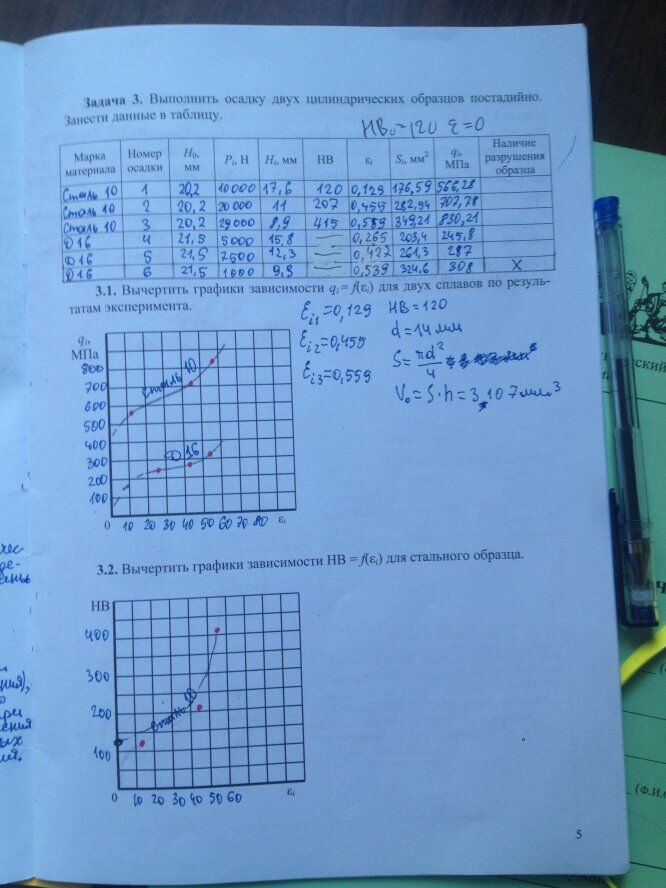 Задача 3. Выполнить осадку двух цилиндрических образцов постадийно.
Занести данные в таблицу.
HB₀=120 ε=0
Марка материала Номер осадки H₀, мм Pᵢ, Н Hᵢ, мм НВ εᵢ Sᵢ, мм² qᵢ, МПа Наличие разрушения образца
Сталь 10 1 20,2 10000 17,6 120 0,129 176,59 566,28
Сталь 10 2 20,2 20000 11 207 0,455 282,54 707,78
Сталь 10 3 20,2 29000 8,9 415 0,559 349,21 830,21
Д16 4 21,5 5000 15,8 0,265 203,4 245,8
Д16 5 21,5 7500 12,3 0,427 261,3 287
Д16 6 21,5 1000 9,9 0,539 324,6 308 X
3.1. Вычертить графики зависимости qᵢ = f(εᵢ) для двух сплавов по резуль-
татам эксперимента.
εᵢ₁=0,129 HB=120
εᵢ₂=0,455 d=14мм
εᵢ₃=0,559 S=πd²/4
V₀=S·h=3,107мм³
qᵢ,
МПа
800
700
600
500
400
300
200
100
0 10 20 30 40 50 60 70 80 εᵢ
Сталь 10
Д16
3.2. Вычертить графики зависимости НВ = f(εᵢ) для стального образца.
НВ
400
300
200
100
0 10 20 30 40 50 60 εᵢ
Сталь 10
5
(Ф.И.О